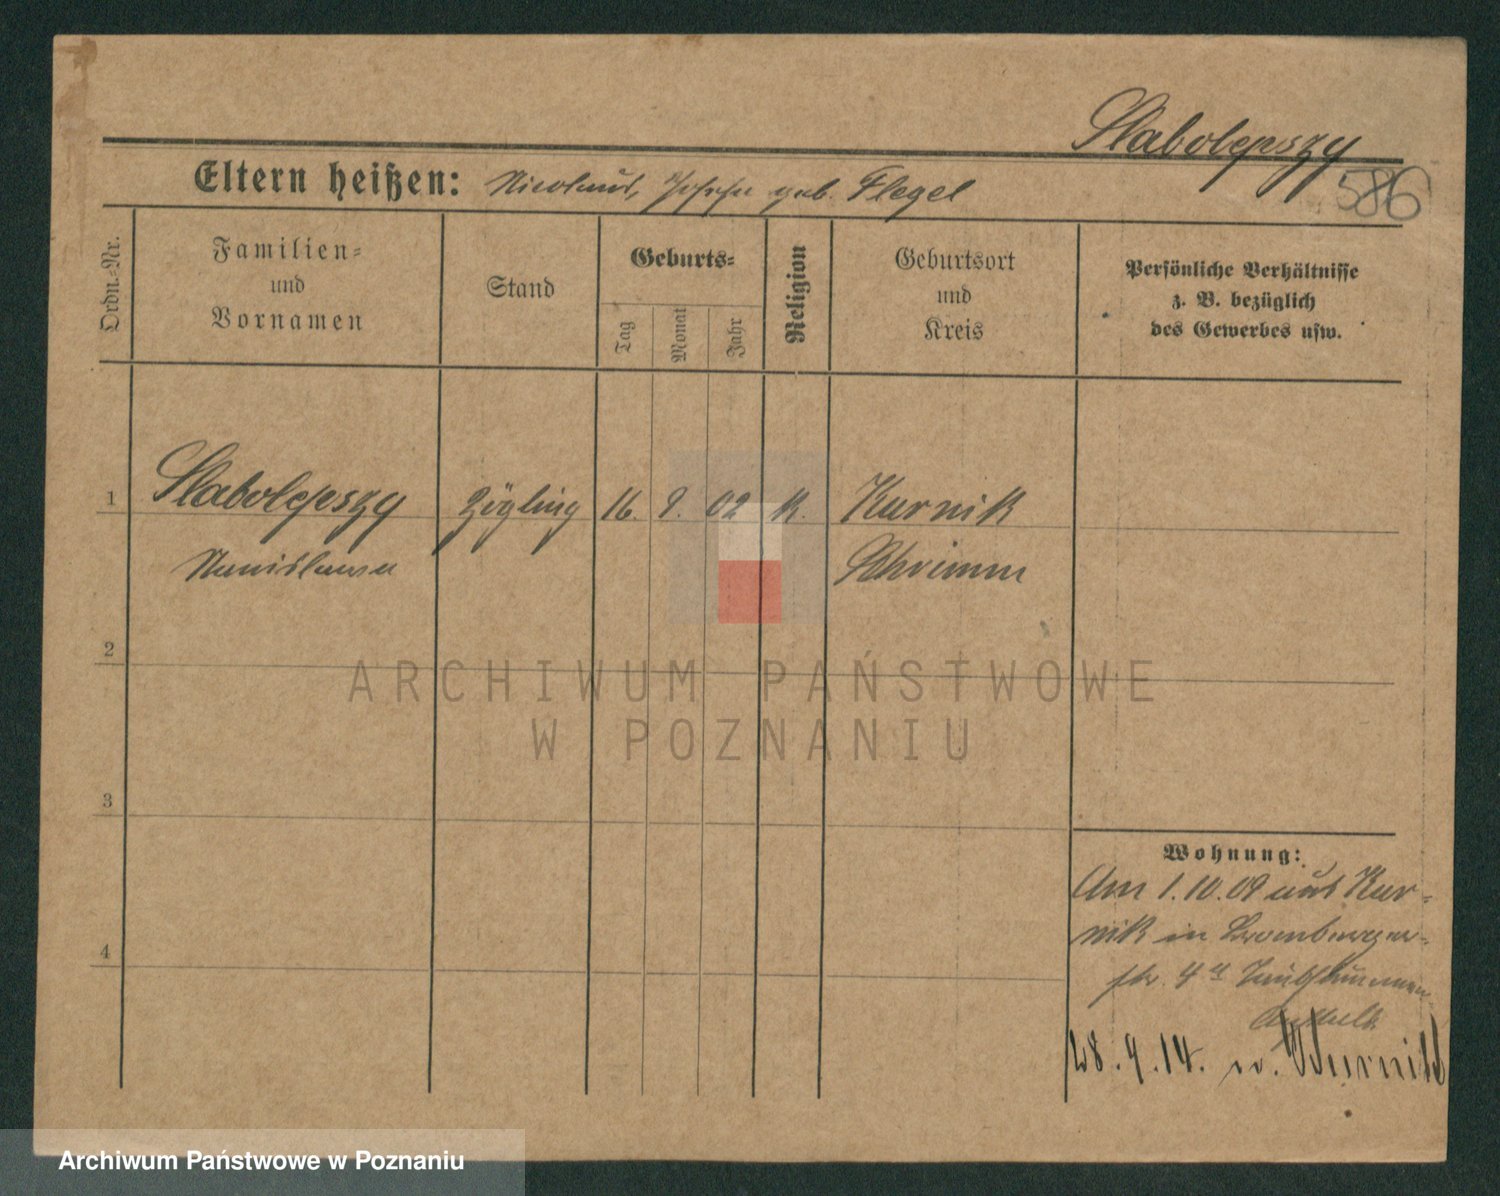 Slabolepszy
586
Eltern heißen: Nicolaus, Josefa geb. Flegel
Ordn.-Nr.
Familien-
und
Vornamen
Stand
Geburts-
Tag
Monat
Jahr
Religion
Geburtsort
und
Kreis
Persönliche Verhältnisse
z. B. bezüglich
des Gewerbes usw.
1 Slabolepszy Zögling 16. 9. 02 K. Kurnik
Stanislawa Schrimm
2
3
4
Wohnung:
Am 1.10.09 aus Kur-
nik in Bromberger-
str. 4a Taubstummen-
Anstalt
28.9.14. n. Kurnik
ARCHIWUM PAŃSTWOWE
W POZNANIU
Archiwum Państwowe w Poznaniu